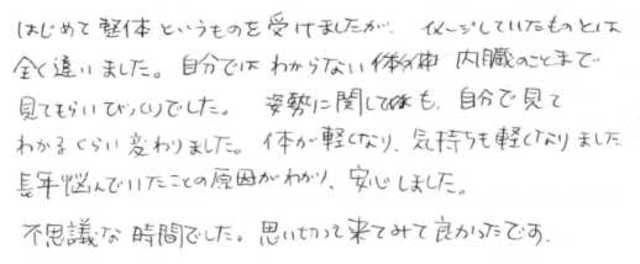 はじめて整体というものを受けましたが、イメージしていたものとは
全く違いました。自分ではわからない体 内臓のことまで
見てもらいびっくりでした。 姿勢に関しても、自分で見て
わかるくらい変わりました。体が軽くなり、気持ちも軽くなりました
長年悩んでいたことの原因がわかり、安心しました。
不思議な時間でした。思い切って来てみて良かったです。